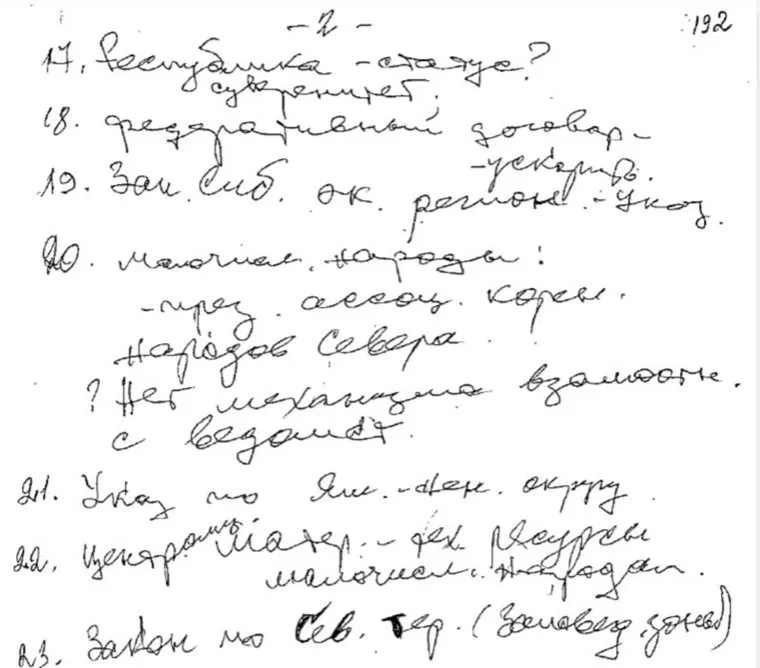 - 2 -
192
17. Республика - статус?
суверенитет.
18. федеративный договор -
- ускорить.
19. Зап. Сиб. эк. регион. - Указ.
20. малочисл. народы:
- през. ассоц. корен.
народов Севера.
? Нет механизма взаимоотн.
с ведомст.
21. Указ по Ям.-Нен. округу
22. Центр матер.-тех. ресурсы
малочисл. народам.
23. Закон по Сев. тер. (Заповед. зоны)